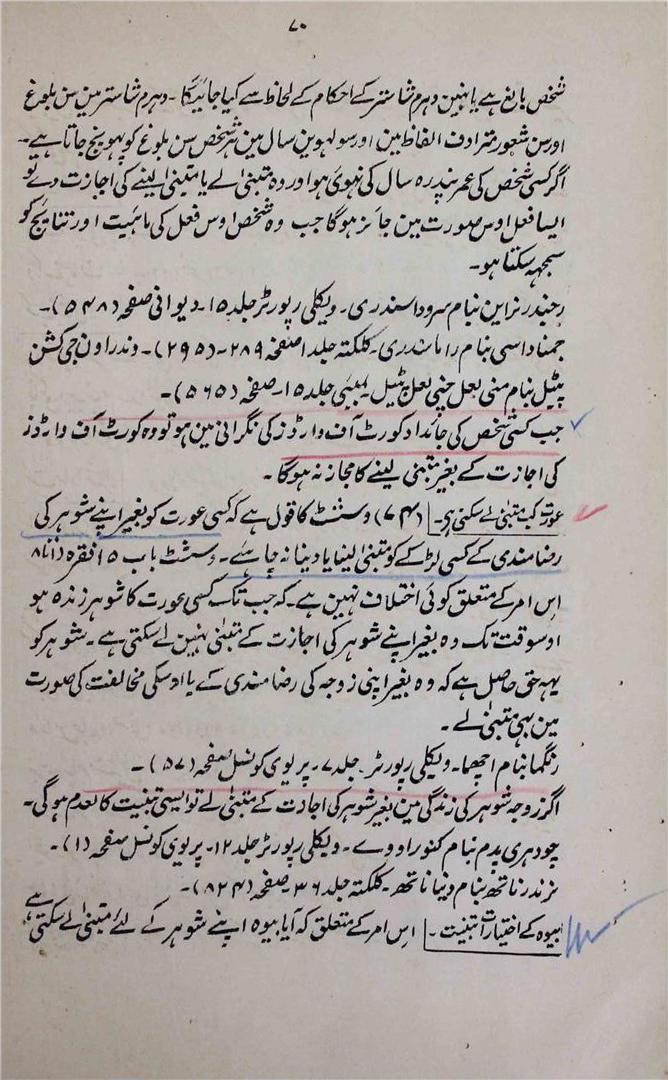 ۷۰
شخص بالغ ہے یا نہین دہرم شاستر کے احکام کے لحاظ سے کیا جائیگا ۔ دہرم شاستر مین سن بلوغ
اور سن شعور مترادف الفاظ ہین اور سولہوین سال مین ہر شخص سن بلوغ کو پہونچ جاتا ہے ۔
اگر کسی شخص کی عمر پندرہ سال کی ہوئی ہو اور وہ متبنیٰ لے یا متبنیٰ لینے کی اجازت دے تو
ایسا فعل اوس صورت مین جائز ہوگا جب وہ شخص اوس فعل کی ماہیت اور نتائج کو
سمجہہ سکتا ہو ۔
رجیندر نراین بنام سرودا سندری ۔ ویکلی رپورٹر جلد ۱۵ ۔ دیوانی صفحہ (۵۴۸) ۔
جمنا داسی بنام راما سندری ۔ کلکتہ جلد ۱ صفحہ ۲۸۹ ۔ (۲۹۵) ۔ وندراون جی کشن
پٹیل بنام منی لعل چنی لعل پٹیل ۔ بمبئی جلد ۱۵ ۔ صفحہ (۵۶۵) ۔
جب کسی شخص کی جائداد کورٹ آف وارڈز کی نگرانی مین ہو تو وہ کورٹ آف وارڈز
کی اجازت کے بغیر متبنی لینے کا مجاز نہ ہوگا ۔
عورت کب متبنی لے سکتی ہے ۔ (۷۴) وسشٹ کا قول ہے کہ کسی عورت کو بغیر اپنے شوہر کی
رضامندی کے کسی لڑکے کو متبنی لینا یا دینا نہ چاہئے ۔ وسشٹ باب ۱۵ فقرہ (۱ تا ۸)
اِس امر کے متعلق کوئی اختلاف نہین ہے ۔ کہ جب تک کسی عورت کا شوہر زندہ ہو
اوسوقت تک وہ بغیر اپنے شوہر کی اجازت کے متبنی نہین لے سکتی ہے ۔ شوہر کو
یہہ حق حاصل ہے کہ وہ بغیر اپنی زوجہ کی رضامندی کے یا اوسکی مخالفت کی صورت
مین بہی متبنی لے ۔
رنگما بنام اچھما ۔ ویکلی رپورٹر ۔ جلد ۷ ۔ پریوی کونسل صفحہ (۵۷) ۔
اگر زوجہ شوہر کی زندگی مین بغیر شوہر کی اجازت کے متبنی لے تو ایسی تبنیت کالعدم ہوگی ۔
چودہری پدم بنام کنور اودے ۔ ویکلی رپورٹر جلد ۱۲ ۔ پریوی کونسل صفحہ (۱) ۔
نرندر ناتھ بنام دینا ناتھ ۔ کلکتہ جلد ۳۶ ۔ صفحہ (۸۲۴) ۔
بیوہ کے اختیارات تبنیت ۔ اِس امر کے متعلق کہ آیا بیوہ اپنے شوہر کے لئے متبنی لے سکتی ہے